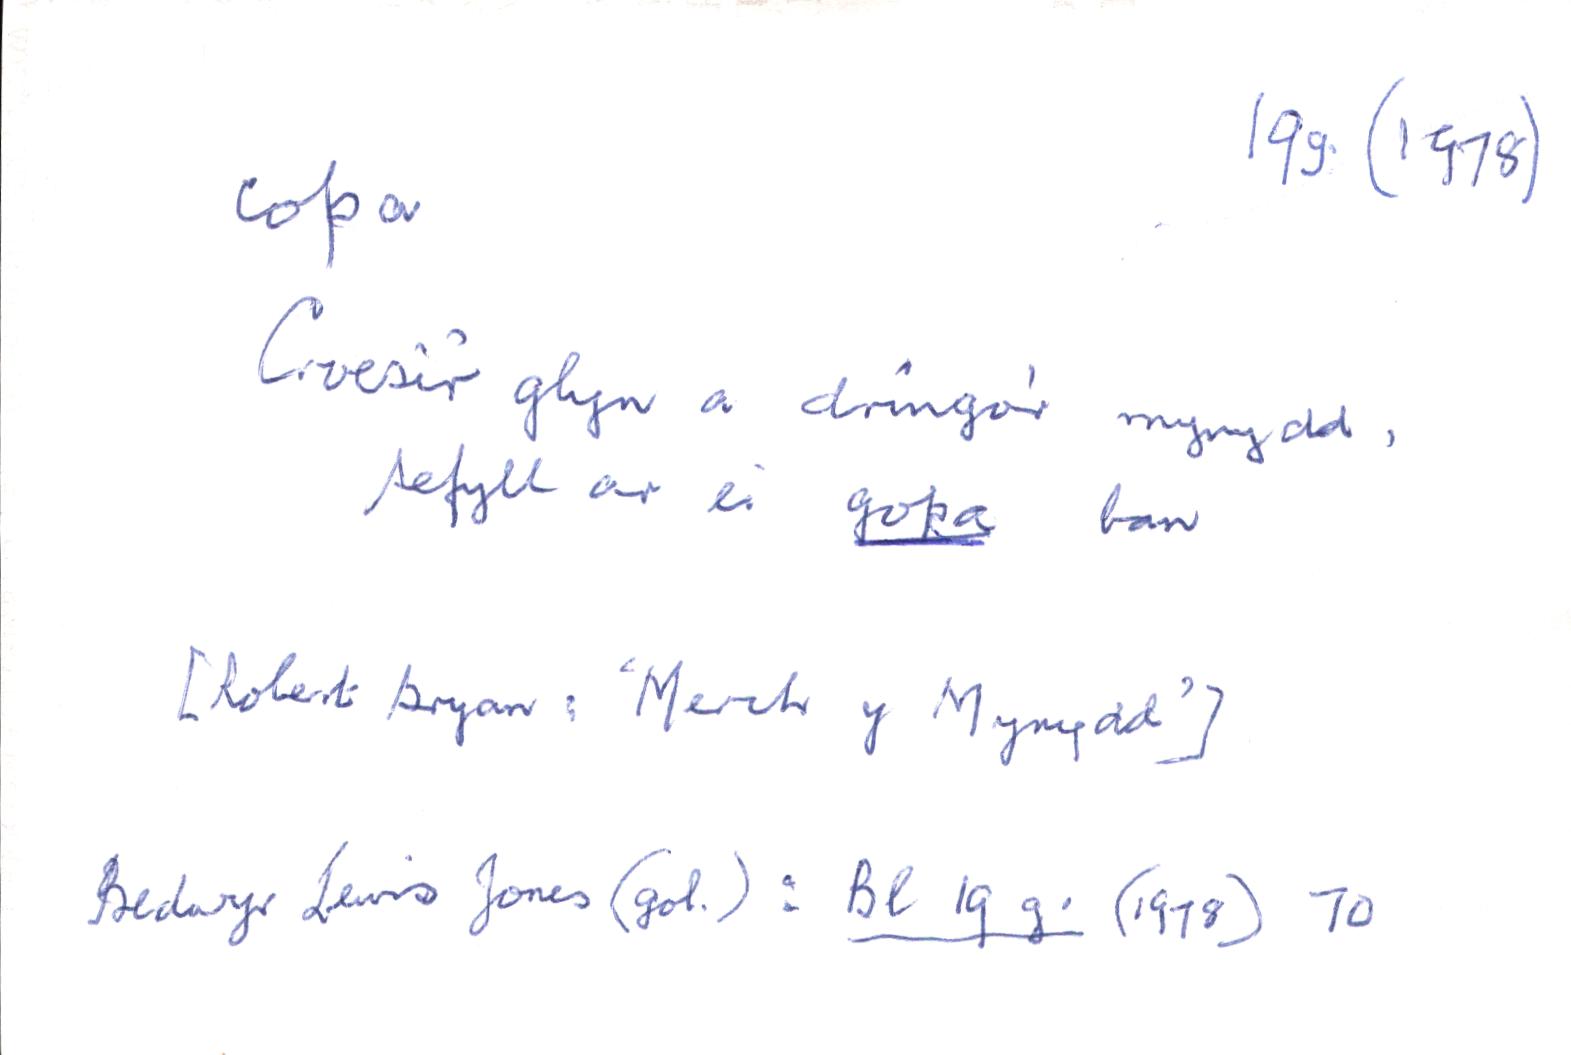 19g. (1978)
copa
Croesi'r glyn a dringo'r mynydd,
sefyll ar ei gopa ban
[Robert Bryan: 'Merch y Mynydd']
Bedwyr Lewis Jones (gol.): Bl 19 g. (1978) 70